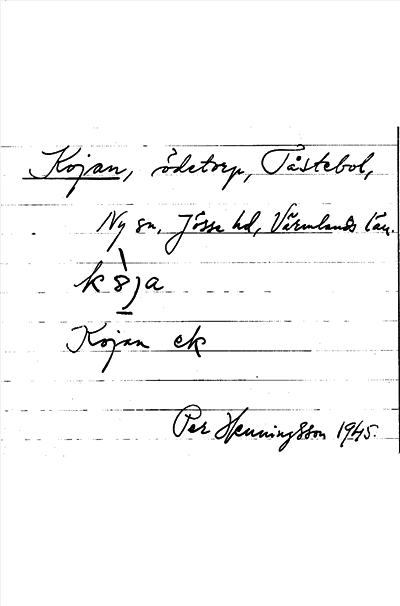 Kojan, ödetorp, Tåstebol,
Ny sn, Jösse hd, Värmlands län.
Kojan ek
Per Henningsson 1945.